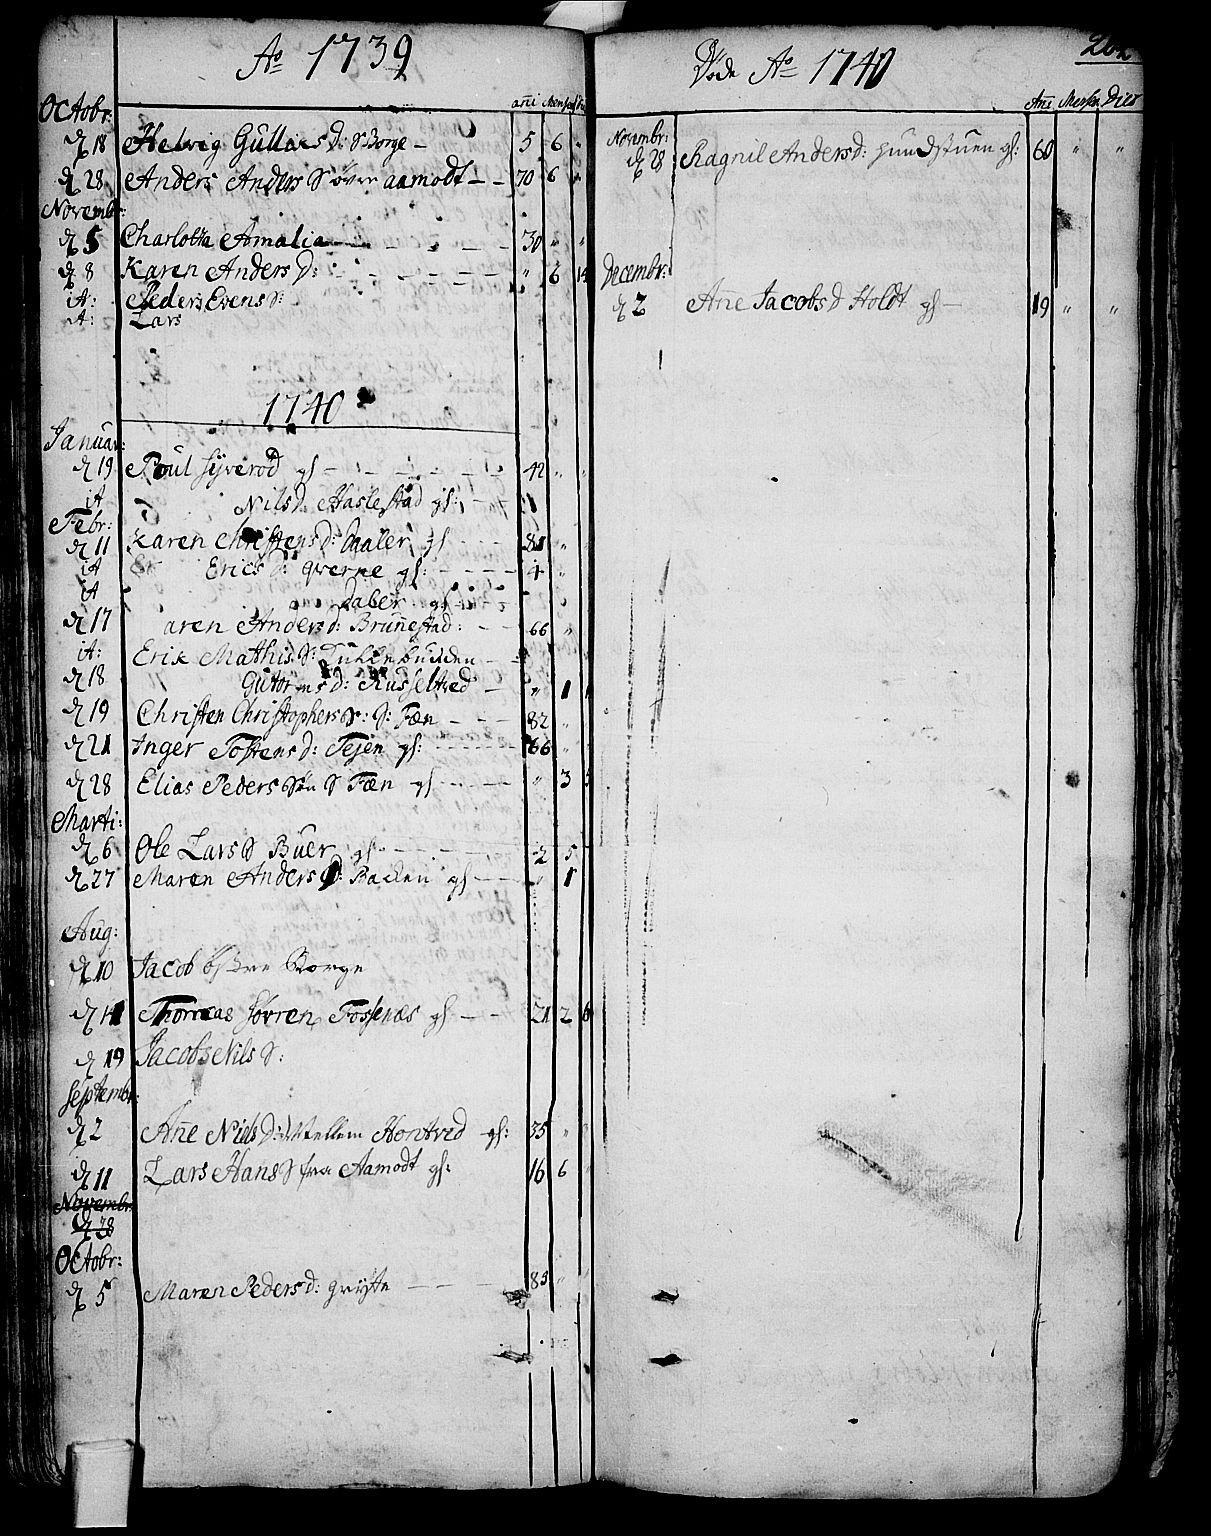 Ao 1739
Octobr: añi Mens
d 18 Helvig Gullichs D: S Borge 5 6 "
d 28 Anders Anders S øvre aamodt 70 6 "
Novembr:
d 5 Charlotta Amalia 30 " "
d 8 Karen Anders D: " 6 14
it: Peder Evens S:
it: Lars
1740
Januar:
d 19 Poul Syverød gl 42 " "
it Nils D. Haslestad gl: 1
Febr:
d 11 Karen Christens D: Haaler gl 81 "
it Erics D: qverne gl: 4 "
it Daber gl
d 17 aren Anders D: Bruñestad: 66 "
it: Erik Mathis S:
d 18 Gutorms D: Russeltved " 1
d 19 Christen Christophers S: S: Fæn 82 "
d 21 Inger Tostens D: Tejen gl: 66 "
d 28 Elias Peders Søn S Fæn gl " 3 5
Marti:
d 6 Ole Lars S Buer gl 2 5
d 27 Maren Anders D: Backen gl " 1
Aug:
d 10 Jacob østre Borge
d 14 Thomas Søvren Fossenæs gl 21 2 6
d 19 Jacobs Nils S:
Septembr:
d 2 Añe Niels D: Mellem Hontved gl: 35 " "
d 11 Lars Hans S fra Aamodt gl: 16 6 "
Novembr:
d 28
Octobr:
d 5 Maren Peders D: gryte 83 "
262
Døde Ao 1740
Añi Mens Dies
Novembr:
d 28 Ragnil Anders D: Hundstuen gl: 60 " "
Decembr:
d 2 Añe Jacobs D Holdt gl 19 " "